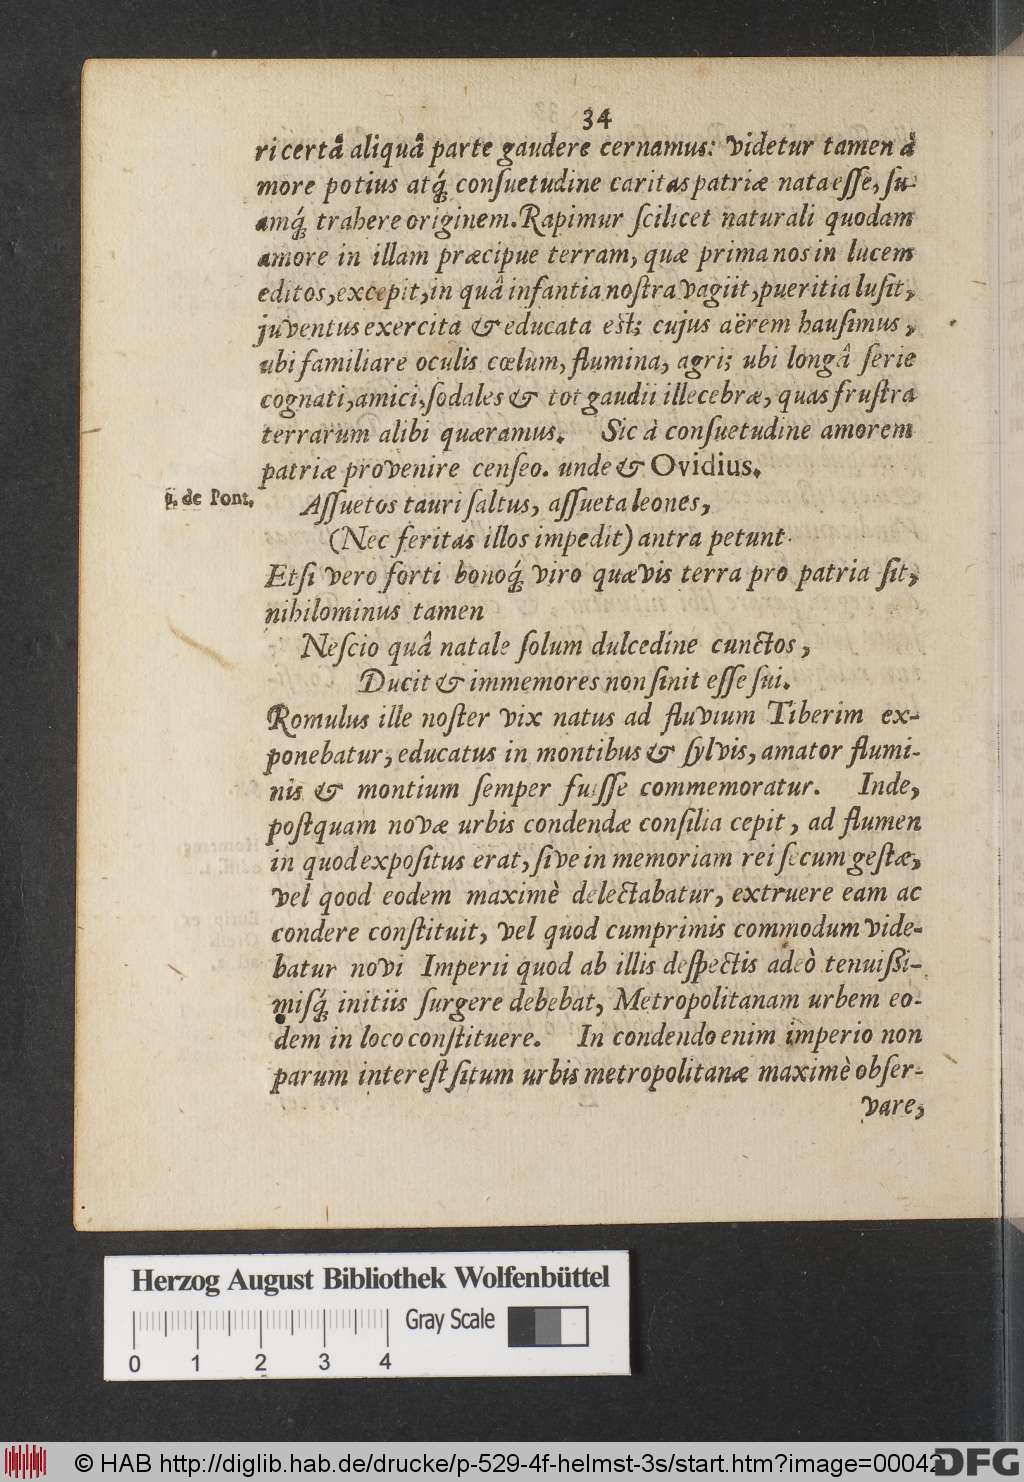 34
ri certâ aliquâ parte gaudere cernamus: videtur tamen à
more potius atq́; conſuetudine caritas patriæ nata eſſe, ſu-
amq́; trahere originem. Rapimur ſcilicet naturali quodam
amore in illam præcipue terram, quæ prima nos in lucem
editos, excepit, in quâ infantia noſtra vagiit, pueritia luſit,
juventus exercita & educata eſt; cujus aërem hauſimus,
ubi familiare oculis cœlum, flumina, agri; ubi longâ ſerie
cognati, amici, ſodales & tot gaudii illecebræ, quas fruſtra
terrarum alibi quæramus. Sic à conſuetudine amorem
patriæ provenire cenſeo. unde & Ovidius.
de Pont.
Aſſuetos tauri ſaltus, aſſueta leones,
(Nec feritas illos impedit) antra petunt.
Etſi vero forti bonoq́; viro quævis terra pro patria ſit,
nihilominus tamen
Neſcio quâ natale ſolum dulcedine cunctos,
Ducit & immemores non ſinit eſſe ſui.
Romulus ille noſter vix natus ad fluvium Tiberim ex-
ponebatur, educatus in montibus & ſylvis, amator flumi-
nis & montium ſemper fuiſſe commemoratur. Inde,
poſtquam novæ urbis condendæ conſilia cepit, ad flumen
in quod expoſitus erat, ſive in memoriam rei ſecum geſtæ,
vel qood eodem maximè delectabatur, extruere eam ac
condere conſtituit, vel quod cumprimis commodum vide-
batur novi Imperii quod ab illis deſpectis adeò tenuiſſi-
misq́; initiis ſurgere debebat, Metropolitanam urbem eo-
dem in loco conſtituere. In condendo enim imperio non
parum intereſt ſitum urbis metropolitanæ maximè obſer-
vare,
Herzog August Bibliothek Wolfenbüttel
Gray Scale
0 1 2 3 4
© HAB http://diglib.hab.de/drucke/p-529-4f-helmst-3s/start.htm?image=00042
DFG